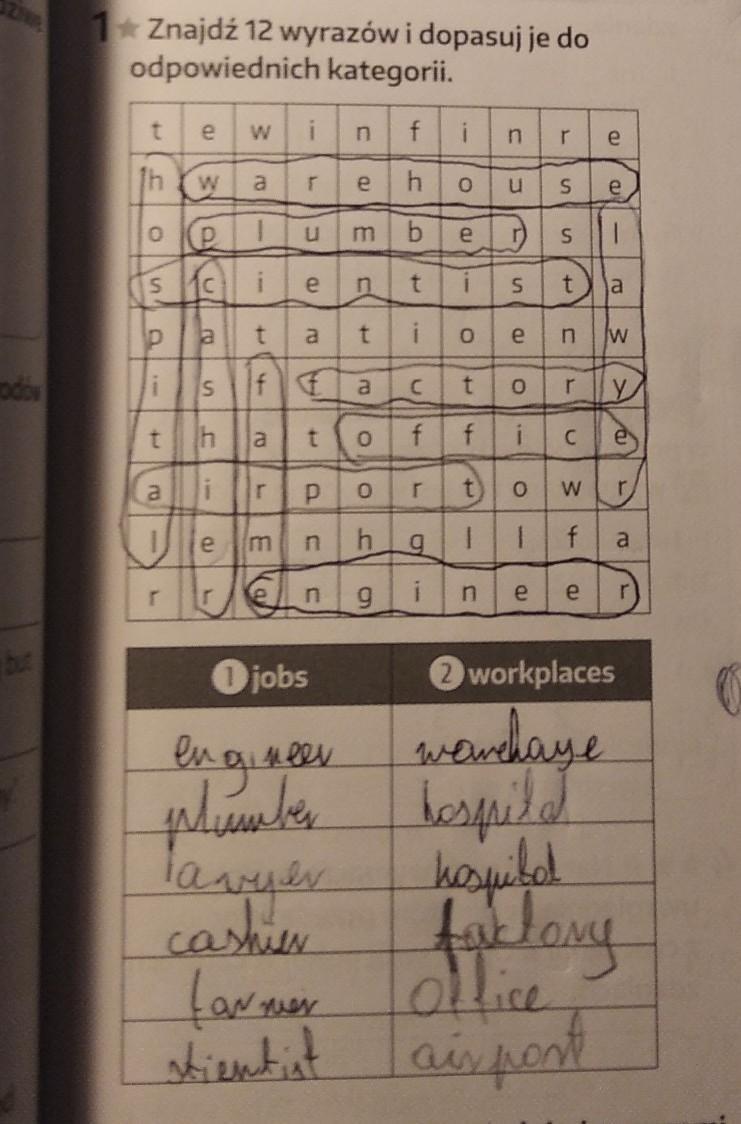 1 Znajdź 12 wyrazów i dopasuj je do
odpowiednich kategorii.
t e w i n f i n r e
h w a r e h o u s e
o p l u m b e r s l
s c i e n t i s t a
p a t a t i o e n w
i s f f a c t o r y
t h a t o f f i c e
a i r p o r t o w r
l e m n h g l l f a
r r e n g i n e e r
1 jobs 2 workplaces
engineer warehayse
plumber hospital
lawyer hospital
cashier faktory
farmer Office
stientist airport